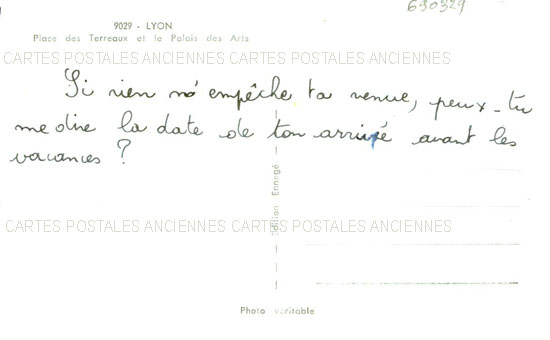 630329
9029 - LYON
Place des Terreaux et le Palais des Arts
CARTES POSTALES ANCIENNES CARTES POSTALES ANCIENNES
Si rien n'empêche ta venue, peux-tu
me dire la date de ton arrivée avant les
vacances ?
CARTES POSTALES ANCIENNES CARTES POSTALES ANCIENNES
Edition Ennagé
Photo véritable